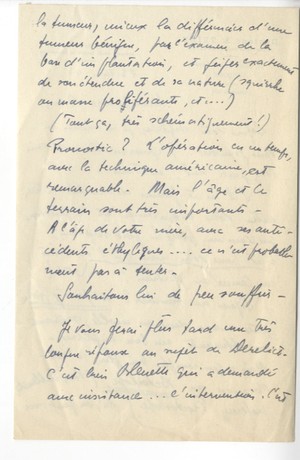 la tumeur, mieux la différencier d'une
tumeur bénigne, par l'examen de la
base d'implantation, et juger exactement
de son étendue et de sa nature (squirrhe
ou masse proliférante, etc...)
(Tout ça, très schématiquement!)
Pronostic? L'opération en un temps,
avec la technique américaine, est
remarquable. Mais l'âge et le
terrain sont très importants -
A l'âge de votre mère, avec ses anté-
cédents éthyliques .... ce n'est probable-
ment pas à tenter.
Souhaitons lui de peu souffrir -
Je vous ferai plus tard une très
longue réponse au sujet de
C'est bien qui a demandé
avec insistance ... l'intervention. C'est